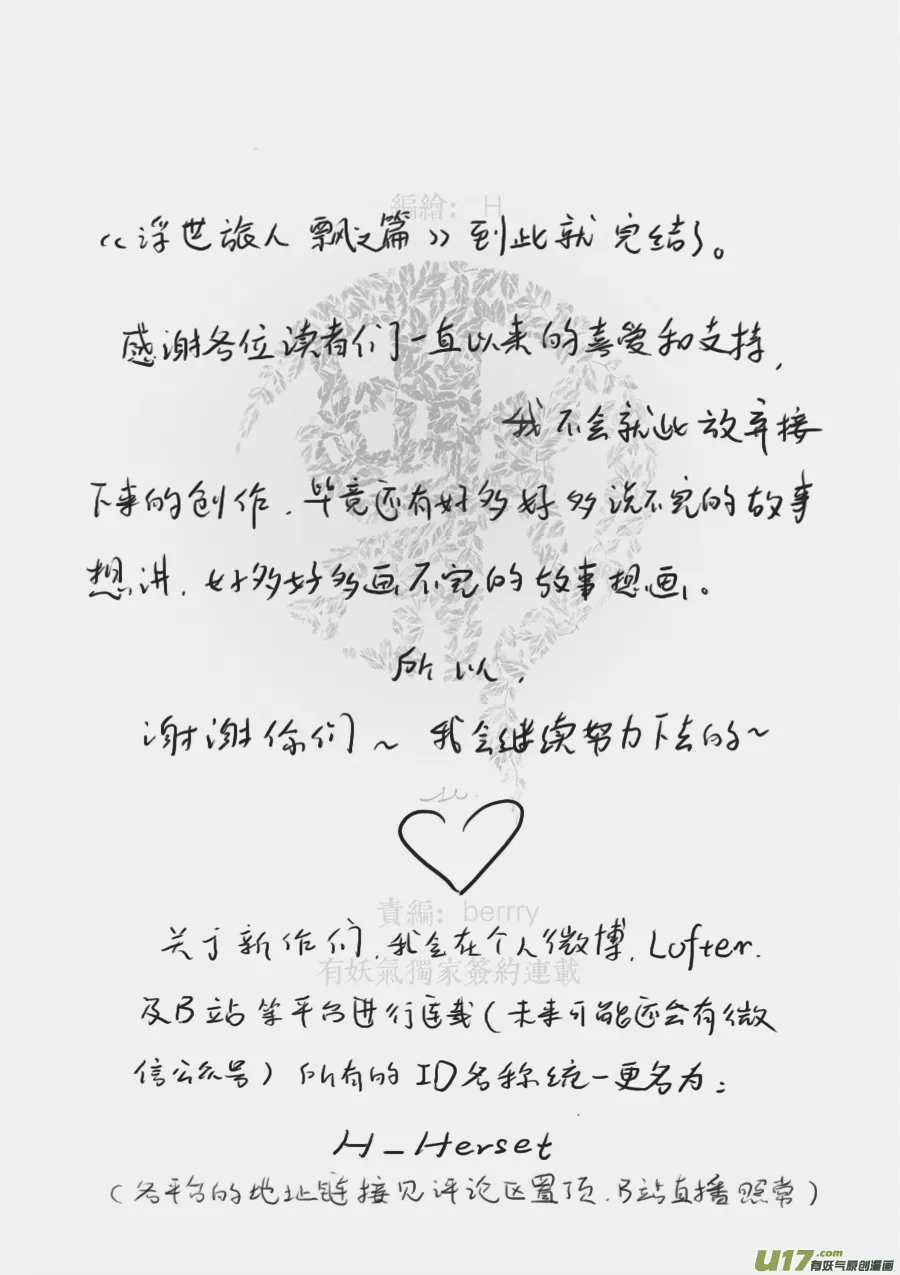 編繪： H
《浮世旅人 飘之篇》到此就完结了。
感谢各位读者们一直以来的喜爱和支持，
我不会就此放弃接
下来的创作，毕竟还有好多好多说不完的故事
想讲，好多好多画不完的故事想画。
所以，
谢谢你们~ 我会继续努力下去的~
責編： berrry
关于新作们，我会在个人微博，Lofter，
有妖氣獨家簽約連載
及B站等平台进行连载（未来可能还会有微
信公众号）所有的ID名称统一更名为：
H_Herset
（各平台的地址链接见评论区置顶，B站直播照常）
U17.com
有妖气原创漫画